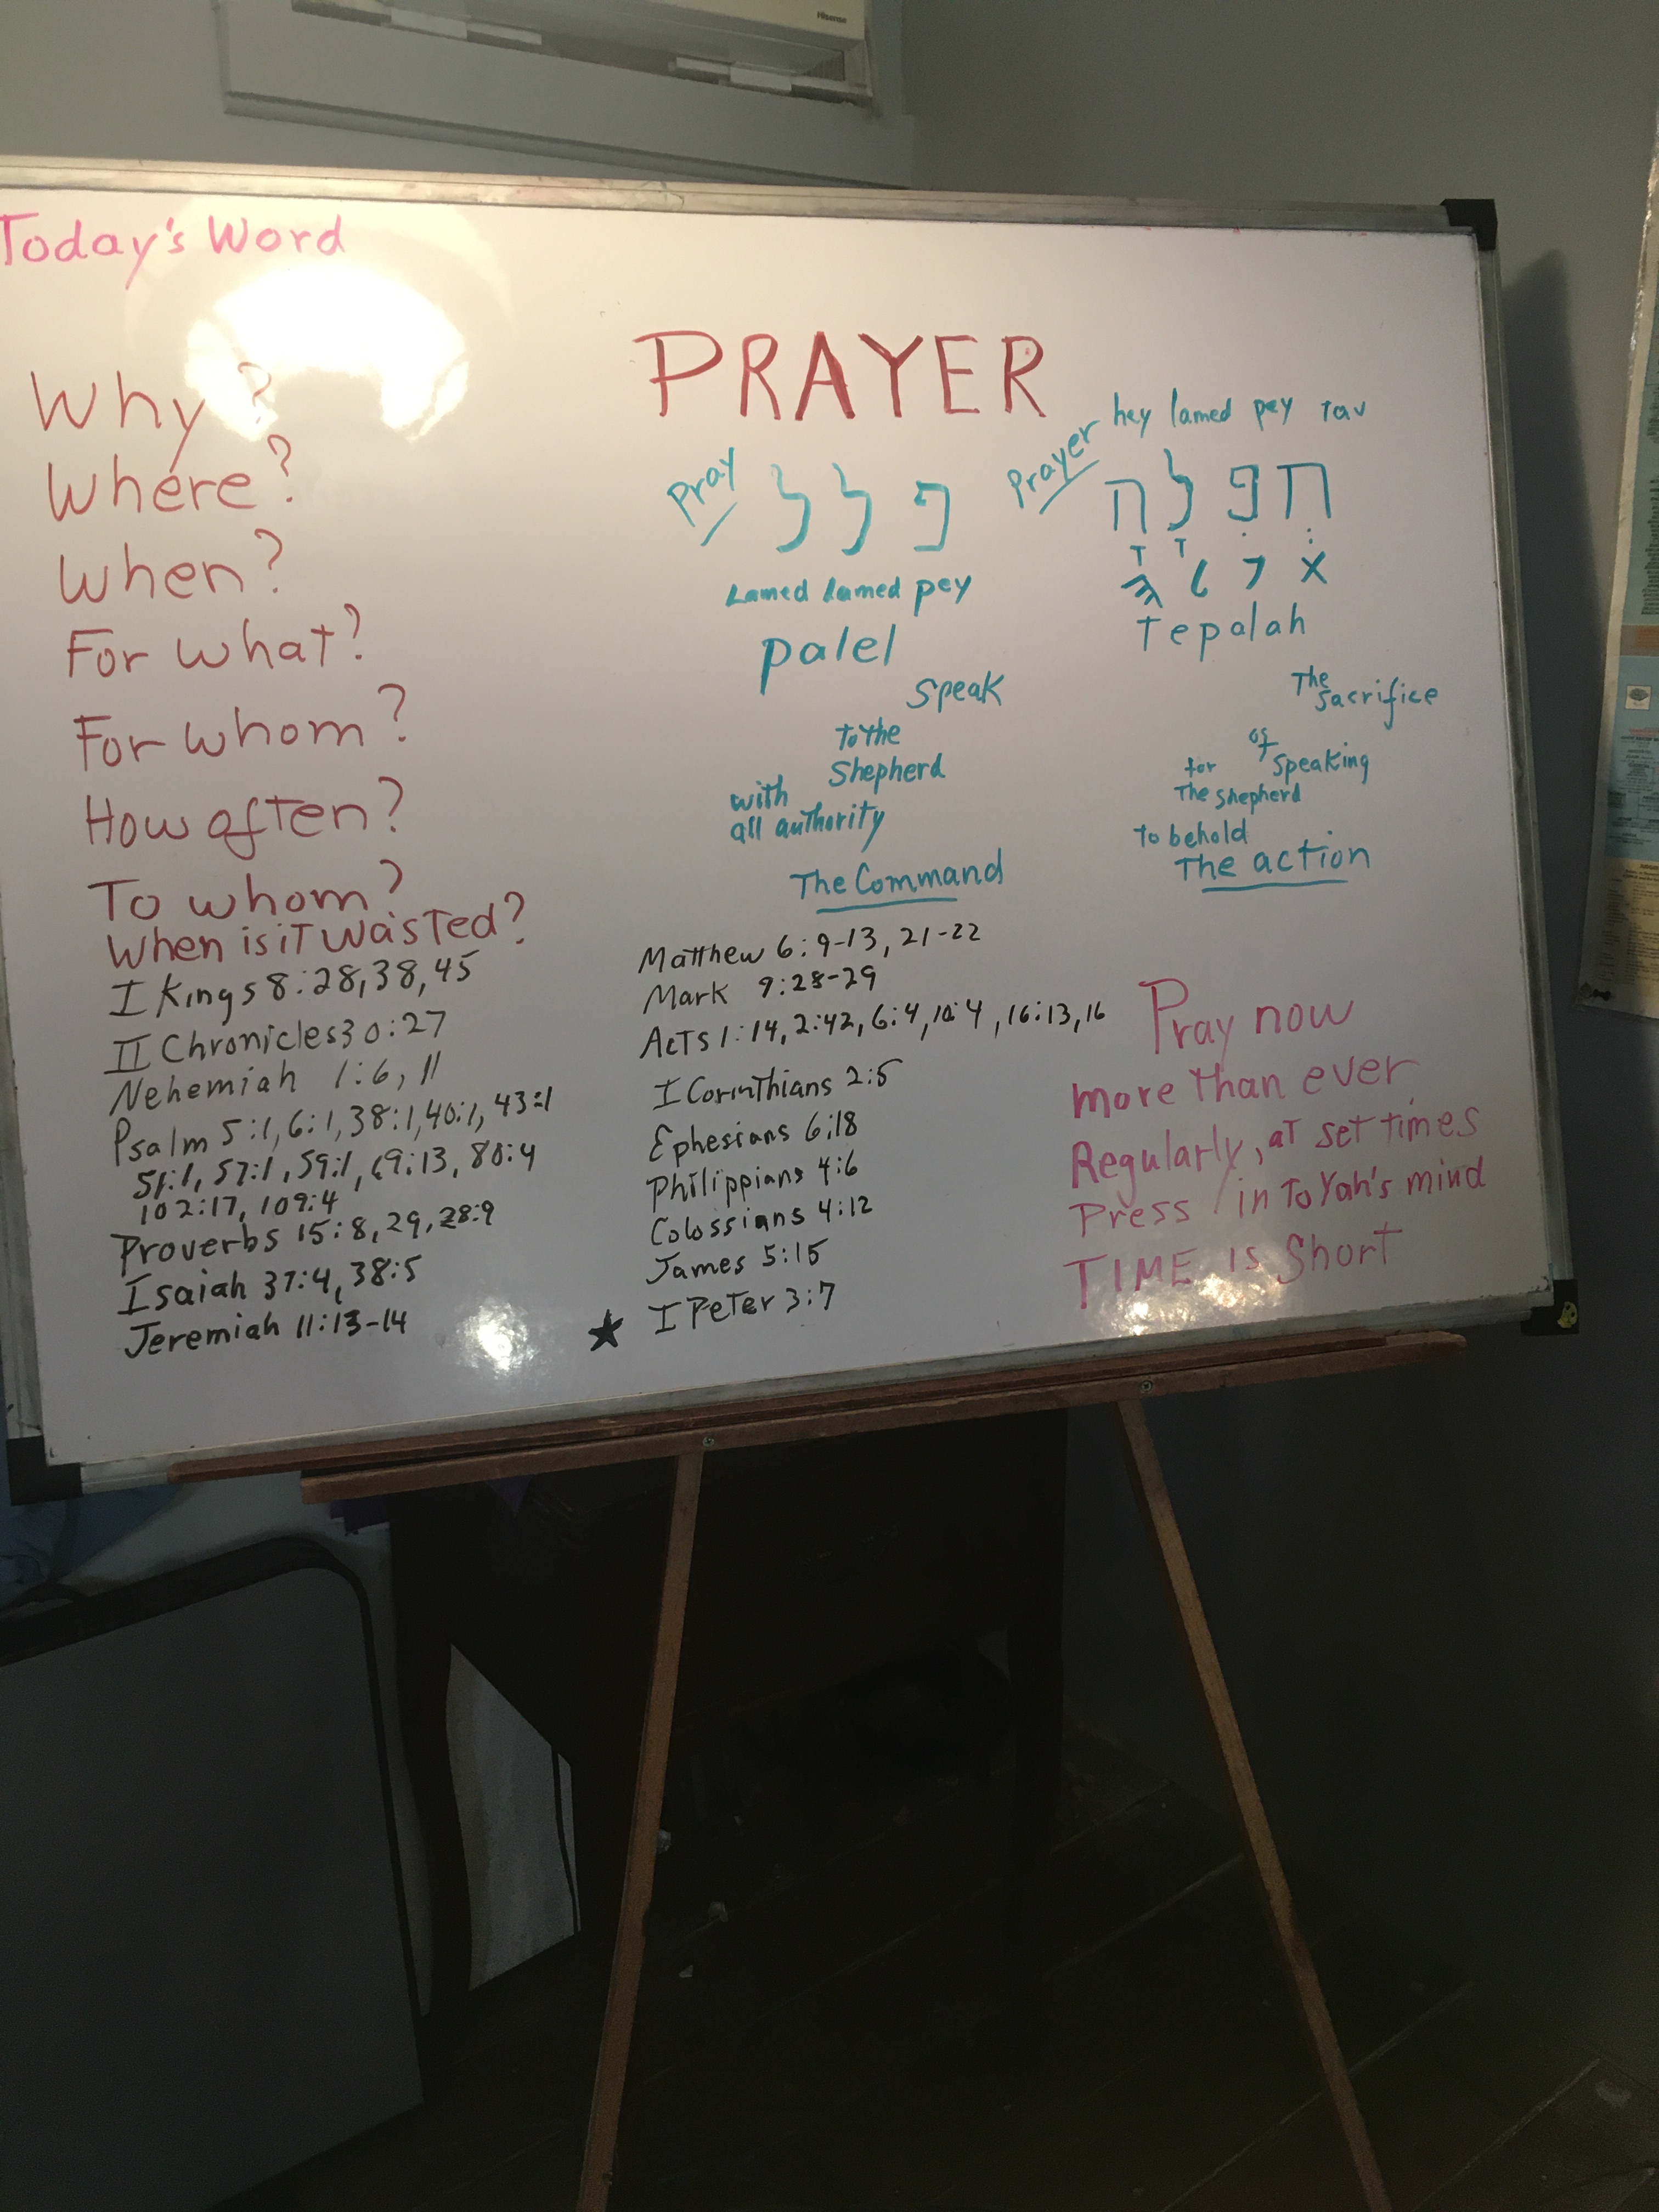 Hisense
Today's Word
PRAYER
Why?
Where?
When?
For what?
For whom?
How often?
To whom?
When is it wasted?
I Kings 8:28,38,45
II Chronicles 30:27
Nehemiah 1:6, 11
Psalm 5:1, 6:1, 38:1, 40:1, 43:1
51:1, 57:1, 59:1, 69:13, 80:4
102:17, 109:4
Proverbs 15:8, 29, 28:9
Isaiah 37:4, 38:5
Jeremiah 11:13-14
Pray
פלל
Lamed lamed pey
palel
Speak
to the
Shepherd
with
all authority
The Command
Prayer
hey lamed pey Tav
תְפִלָה
Tepalah
The
sacrifice
of
speaking
for
The shepherd
to behold
The action
Matthew 6:9-13, 21-22
Mark 9:28-29
Acts 1:14, 2:42, 6:4, 10:4, 16:13, 16
I Corinthians 2:5
Ephesians 6:18
Philippians 4:6
Colossians 4:12
James 5:15
★ I Peter 3:7
Pray now
more than ever
Regularly, at set times
Press in To Yah's mind
TIME is Short